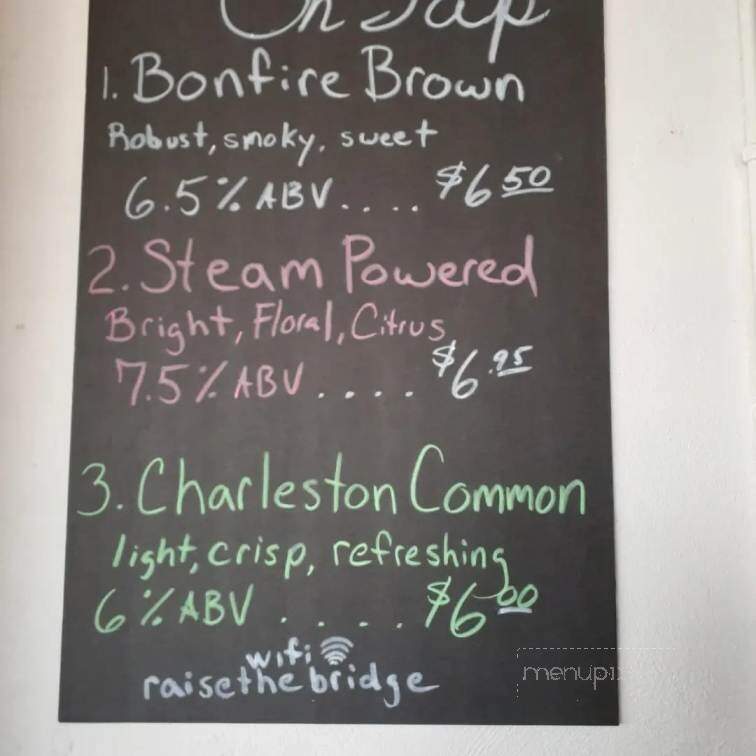 On Tap
1. Bonfire Brown
Robust, smoky, sweet
6.5% ABV.... $6 50
2. Steam Powered
Bright, Floral, Citrus
7.5% ABV.... $6.95
3. Charleston Common
light, crisp, refreshing
6% ABV..... $6 00
wifi
raisethebridge
menupix